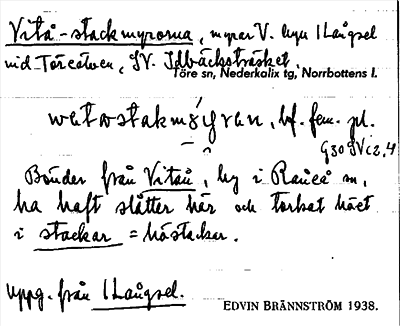 Vitå-stackmyrorna, myrar V. byn Långsel
vid Töreälven, SV. Idbäcksträsket.
Töre sn, Nederkalix tg, Norrbottens l.
bf. fem. pl.
G30 SV c2,4
Bönder från Vitån, by i Råneå sn,
ha haft slåtter här och torkat höet
i stackar = höstackar.
Uppg. från Långsel.
EDVIN BRÄNNSTRÖM 1938.